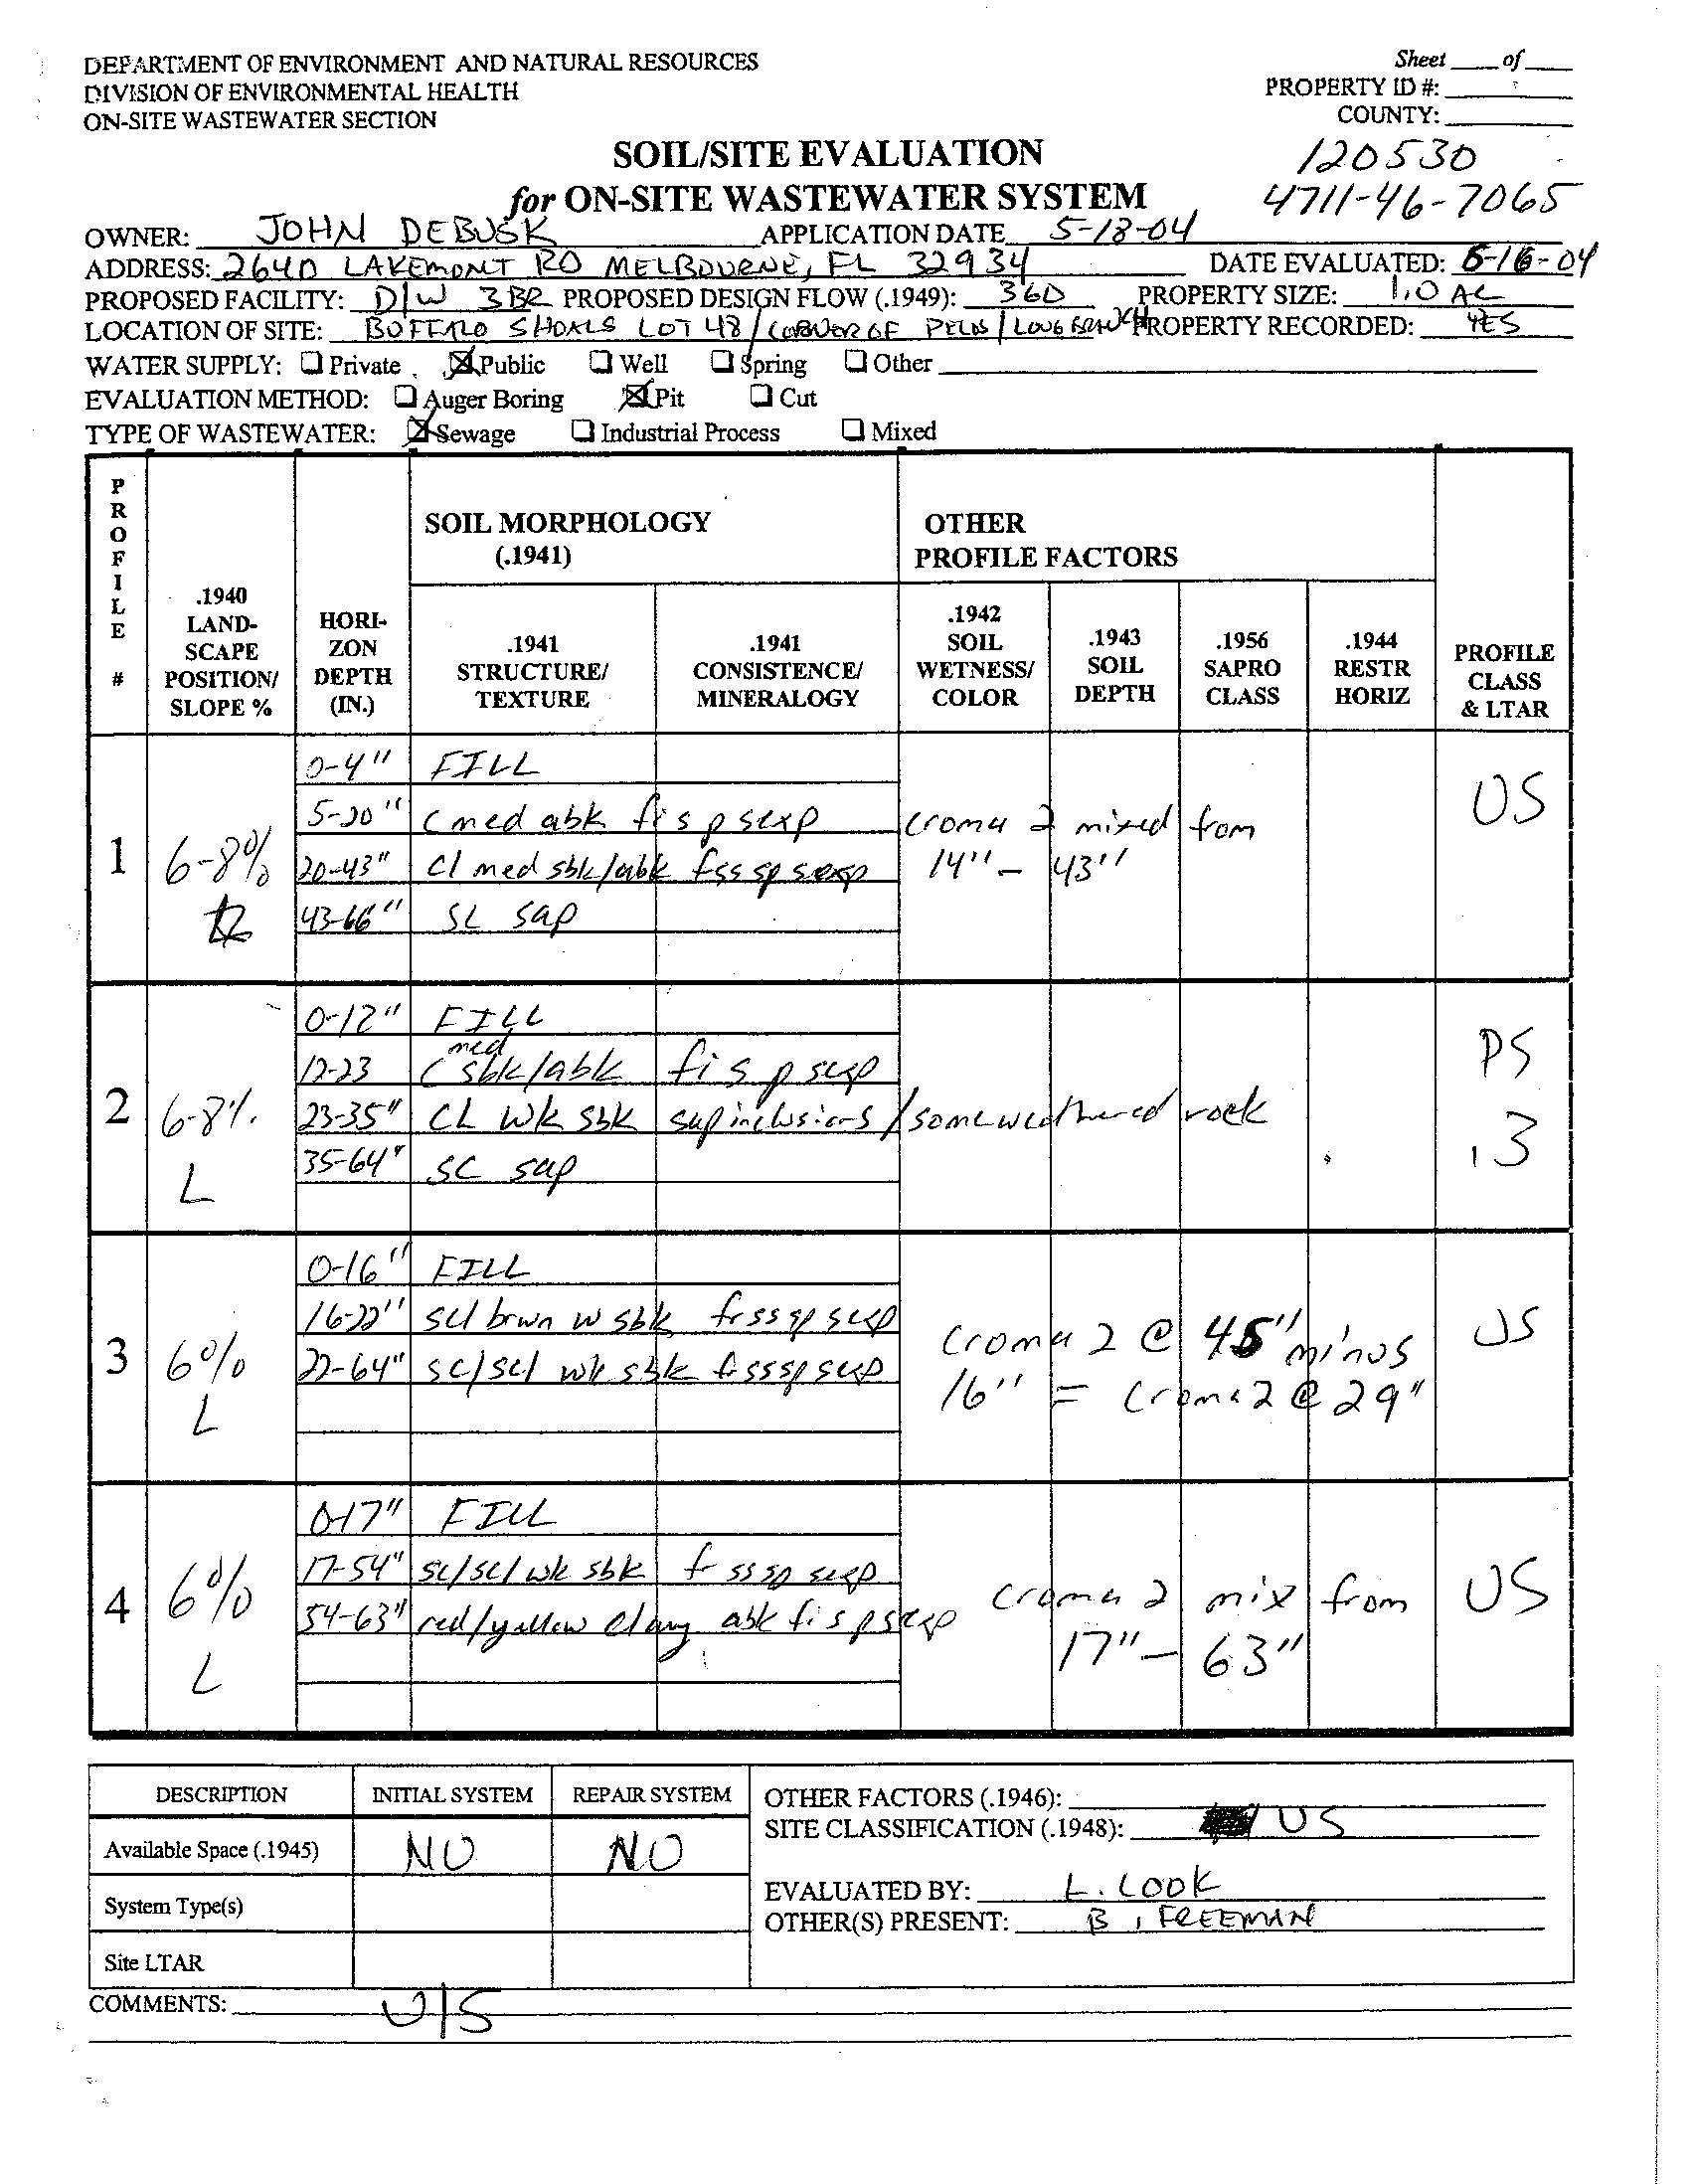 DEPARTMENT OF ENVIRONMENT AND NATURAL RESOURCES
DIVISION OF ENVIRONMENTAL HEALTH
ON-SITE WASTEWATER SECTION
Sheet ____ of ____
PROPERTY ID #:
COUNTY:
120530
4711-46-7065
SOIL/SITE EVALUATION
for ON-SITE WASTEWATER SYSTEM
OWNER: JOHN DEBUSK APPLICATION DATE 5-18-04
ADDRESS: 2640 LAKEMONT RD MELBOURNE, FL 32934 DATE EVALUATED: 6-16-04
PROPOSED FACILITY: D/W 3BR PROPOSED DESIGN FLOW (.1949): 360 PROPERTY SIZE: 1.0 AC
LOCATION OF SITE: BUFFALO SHOALS LOT 48 / CORNER OF / LONG BRANCH PROPERTY RECORDED: YES
WATER SUPPLY: ☐ Private ☒ Public ☐ Well ☐ Spring ☐ Other
EVALUATION METHOD: ☐ Auger Boring ☒ Pit ☐ Cut
TYPE OF WASTEWATER: ☒ Sewage ☐ Industrial Process ☐ Mixed
PROFILE #
.1940 LAND-SCAPE POSITION/ SLOPE %
HORI-ZON DEPTH (IN.)
SOIL MORPHOLOGY (.1941)
OTHER PROFILE FACTORS
.1941 STRUCTURE/ TEXTURE
.1941 CONSISTENCE/ MINERALOGY
.1942 SOIL WETNESS/ COLOR
.1943 SOIL DEPTH
.1956 SAPRO CLASS
.1944 RESTR HORIZ
PROFILE CLASS & LTAR
1 6-8%
0-4" FILL
5-20" C med abk fi s p sexp croma 2 mixed from
20-43" Cl med sbk/abk fss sp sexp 14" - 43"
43-66" SL sap
US
2 6-8% L
0-12" FILL
12-23 C med sbk/abk fi s p sexp
23-35" CL wk sbk sap inclusions / some weathered rock
35-64" SC sap
PS
.3
3 6% L
0-16" FILL
16-22" scl brwn w sbk fr ss sp sexp
22-64" sc/scl wk sbk fr ss sp sexp
croma 2 @ 45" minus
16" = croma 2 @ 29"
US
4 6% L
0-17" FILL
17-54" sc/scl wk sbk fr ss sp sexp
54-63" red/yellow clay abk fi s p sexp
croma 2 mix from
17" - 63"
US
DESCRIPTION INITIAL SYSTEM REPAIR SYSTEM
Available Space (.1945) NO NO
System Type(s)
Site LTAR
OTHER FACTORS (.1946):
SITE CLASSIFICATION (.1948): US
EVALUATED BY: L. COOK
OTHER(S) PRESENT: B. FREEMAN
COMMENTS: U/S